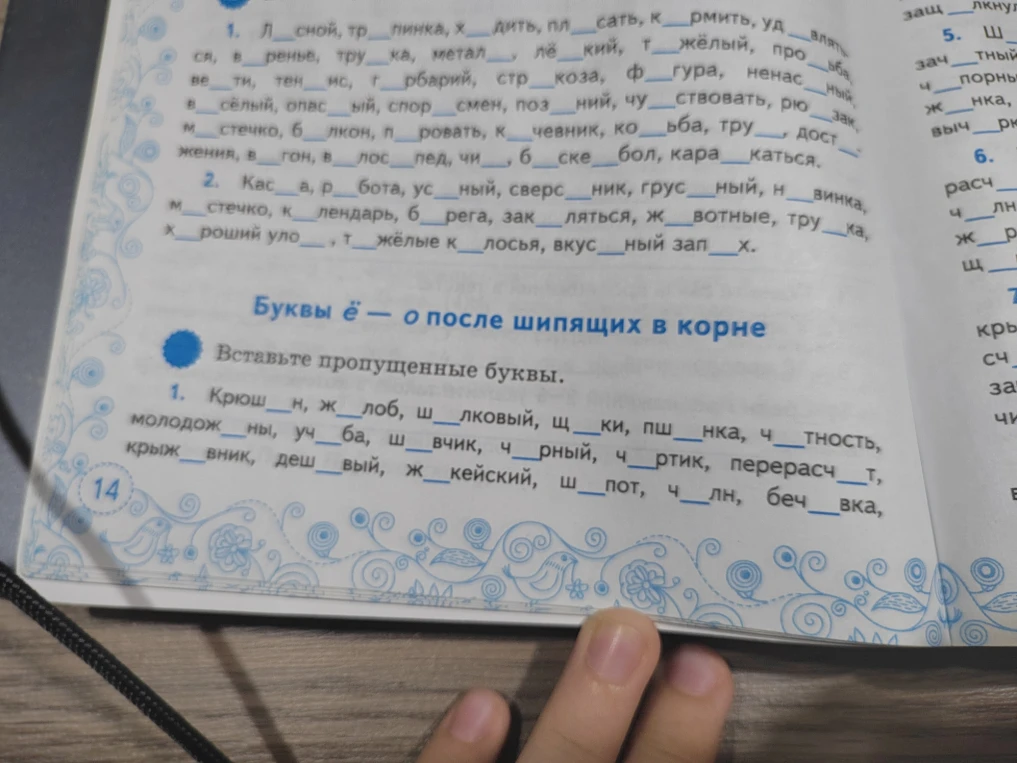 1. Л__сной, тр__пинка, х__дить, пл__сать, к__рмить, уд__влять-
ся, в__ренье, тру__ка, метал__, лё__кий, т__жёлый, про__ьба,
ве__ти, тен__ис, г__рбарий, стр__коза, ф__гура, ненас__ный,
в__сёлый, опас__ый, спор__смен, поз__ний, чу__ствовать, рю__зак,
м__стечко, б__лкон, п__ровать, к__чевник, ко__ьба, тру__, дост__-
жения, в__гон, в__лос__пед, чи__, б__ске__бол, кара__каться.
2. Кас__а, р__бота, ус__ный, сверс__ник, грус__ный, н__винка,
м__стечко, к__лендарь, б__рега, зак__ляться, ж__вотные, тру__ка,
х__роший уло__, т__жёлые к__лосья, вкус__ный зап__х.
Буквы ё — о после шипящих в корне
Вставьте пропущенные буквы.
1. Крюш__н, ж__лоб, ш__лковый, щ__ки, пш__нка, ч__тность,
молодож__ны, уч__ба, ш__вчик, ч__рный, ч__ртик, перерасч__т,
крыж__вник, деш__вый, ж__кейский, ш__пот, ч__лн, беч__вка,
14
защ__лкнул
5. Ш__
зач__тный
ч__порны
ж__нка,
выч__рк
6.
расч__
ч__лн
ж__р
щ__
7
кры
сч__
за
чи